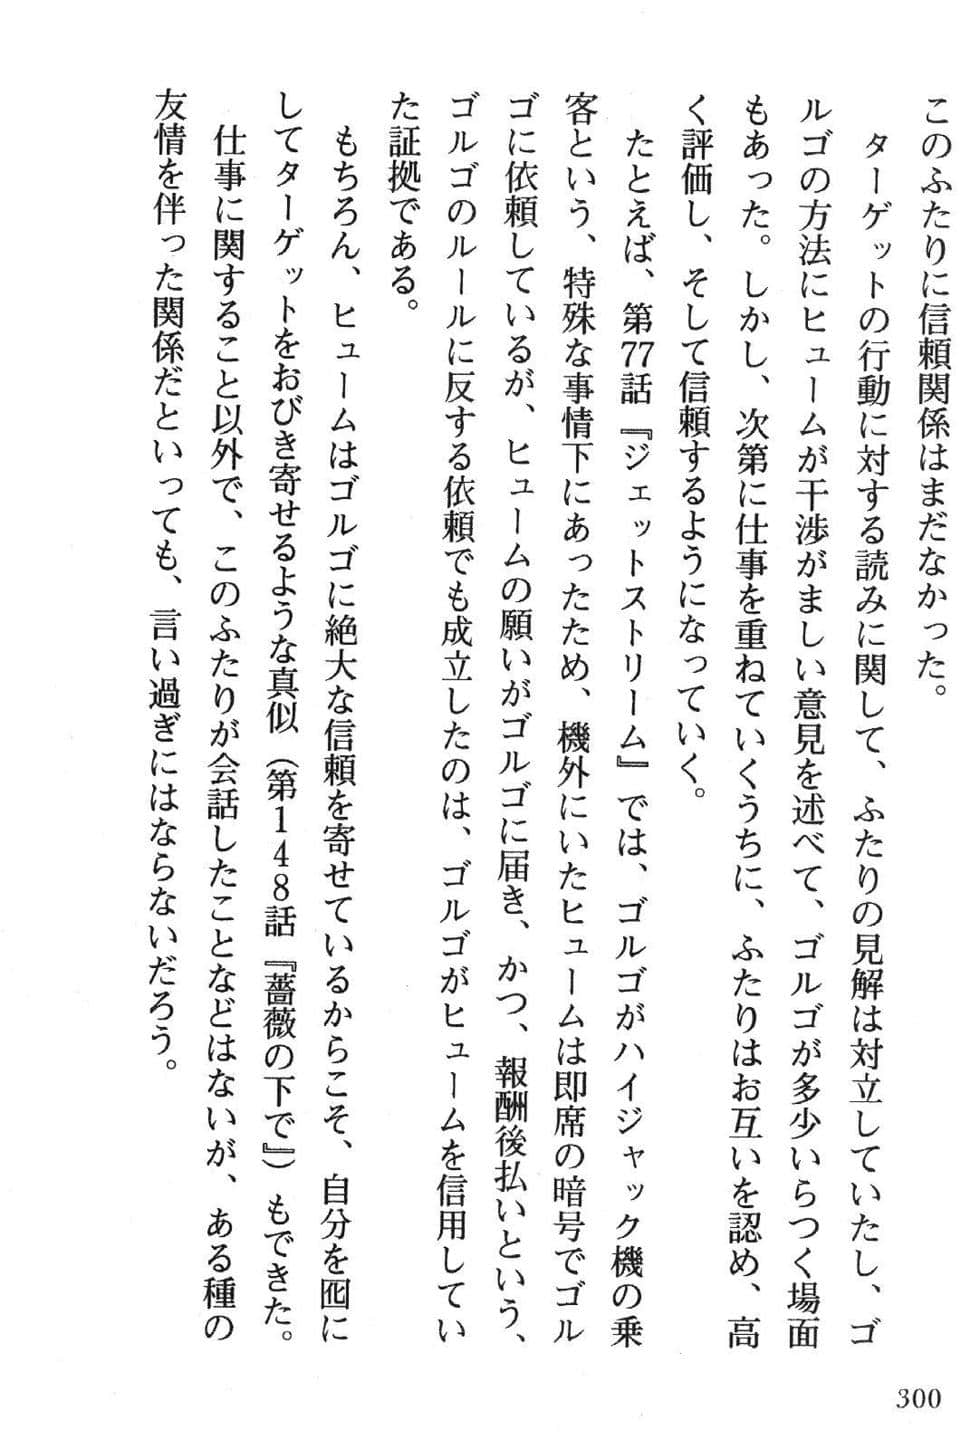 このふたりに信頼関係はまだなかった。
　ターゲットの行動に対する読みに関して、ふたりの見解は対立していたし、ゴ
ルゴの方法にヒュームが干渉がましい意見を述べて、ゴルゴが多少いらつく場面
もあった。しかし、次第に仕事を重ねていくうちに、ふたりはお互いを認め、高
く評価し、そして信頼するようになっていく。
　たとえば、第77話『ジェットストリーム』では、ゴルゴがハイジャック機の乗
客という、特殊な事情下にあったため、機外にいたヒュームは即席の暗号でゴル
ゴに依頼しているが、ヒュームの願いがゴルゴに届き、かつ、報酬後払いという、
ゴルゴのルールに反する依頼でも成立したのは、ゴルゴがヒュームを信用してい
た証拠である。
　もちろん、ヒュームはゴルゴに絶大な信頼を寄せているからこそ、自分を囮に
してターゲットをおびき寄せるような真似（第148話『薔薇の下で』）もできた。
　仕事に関すること以外で、このふたりが会話したことなどはないが、ある種の
友情を伴った関係だといっても、言い過ぎにはならないだろう。
300